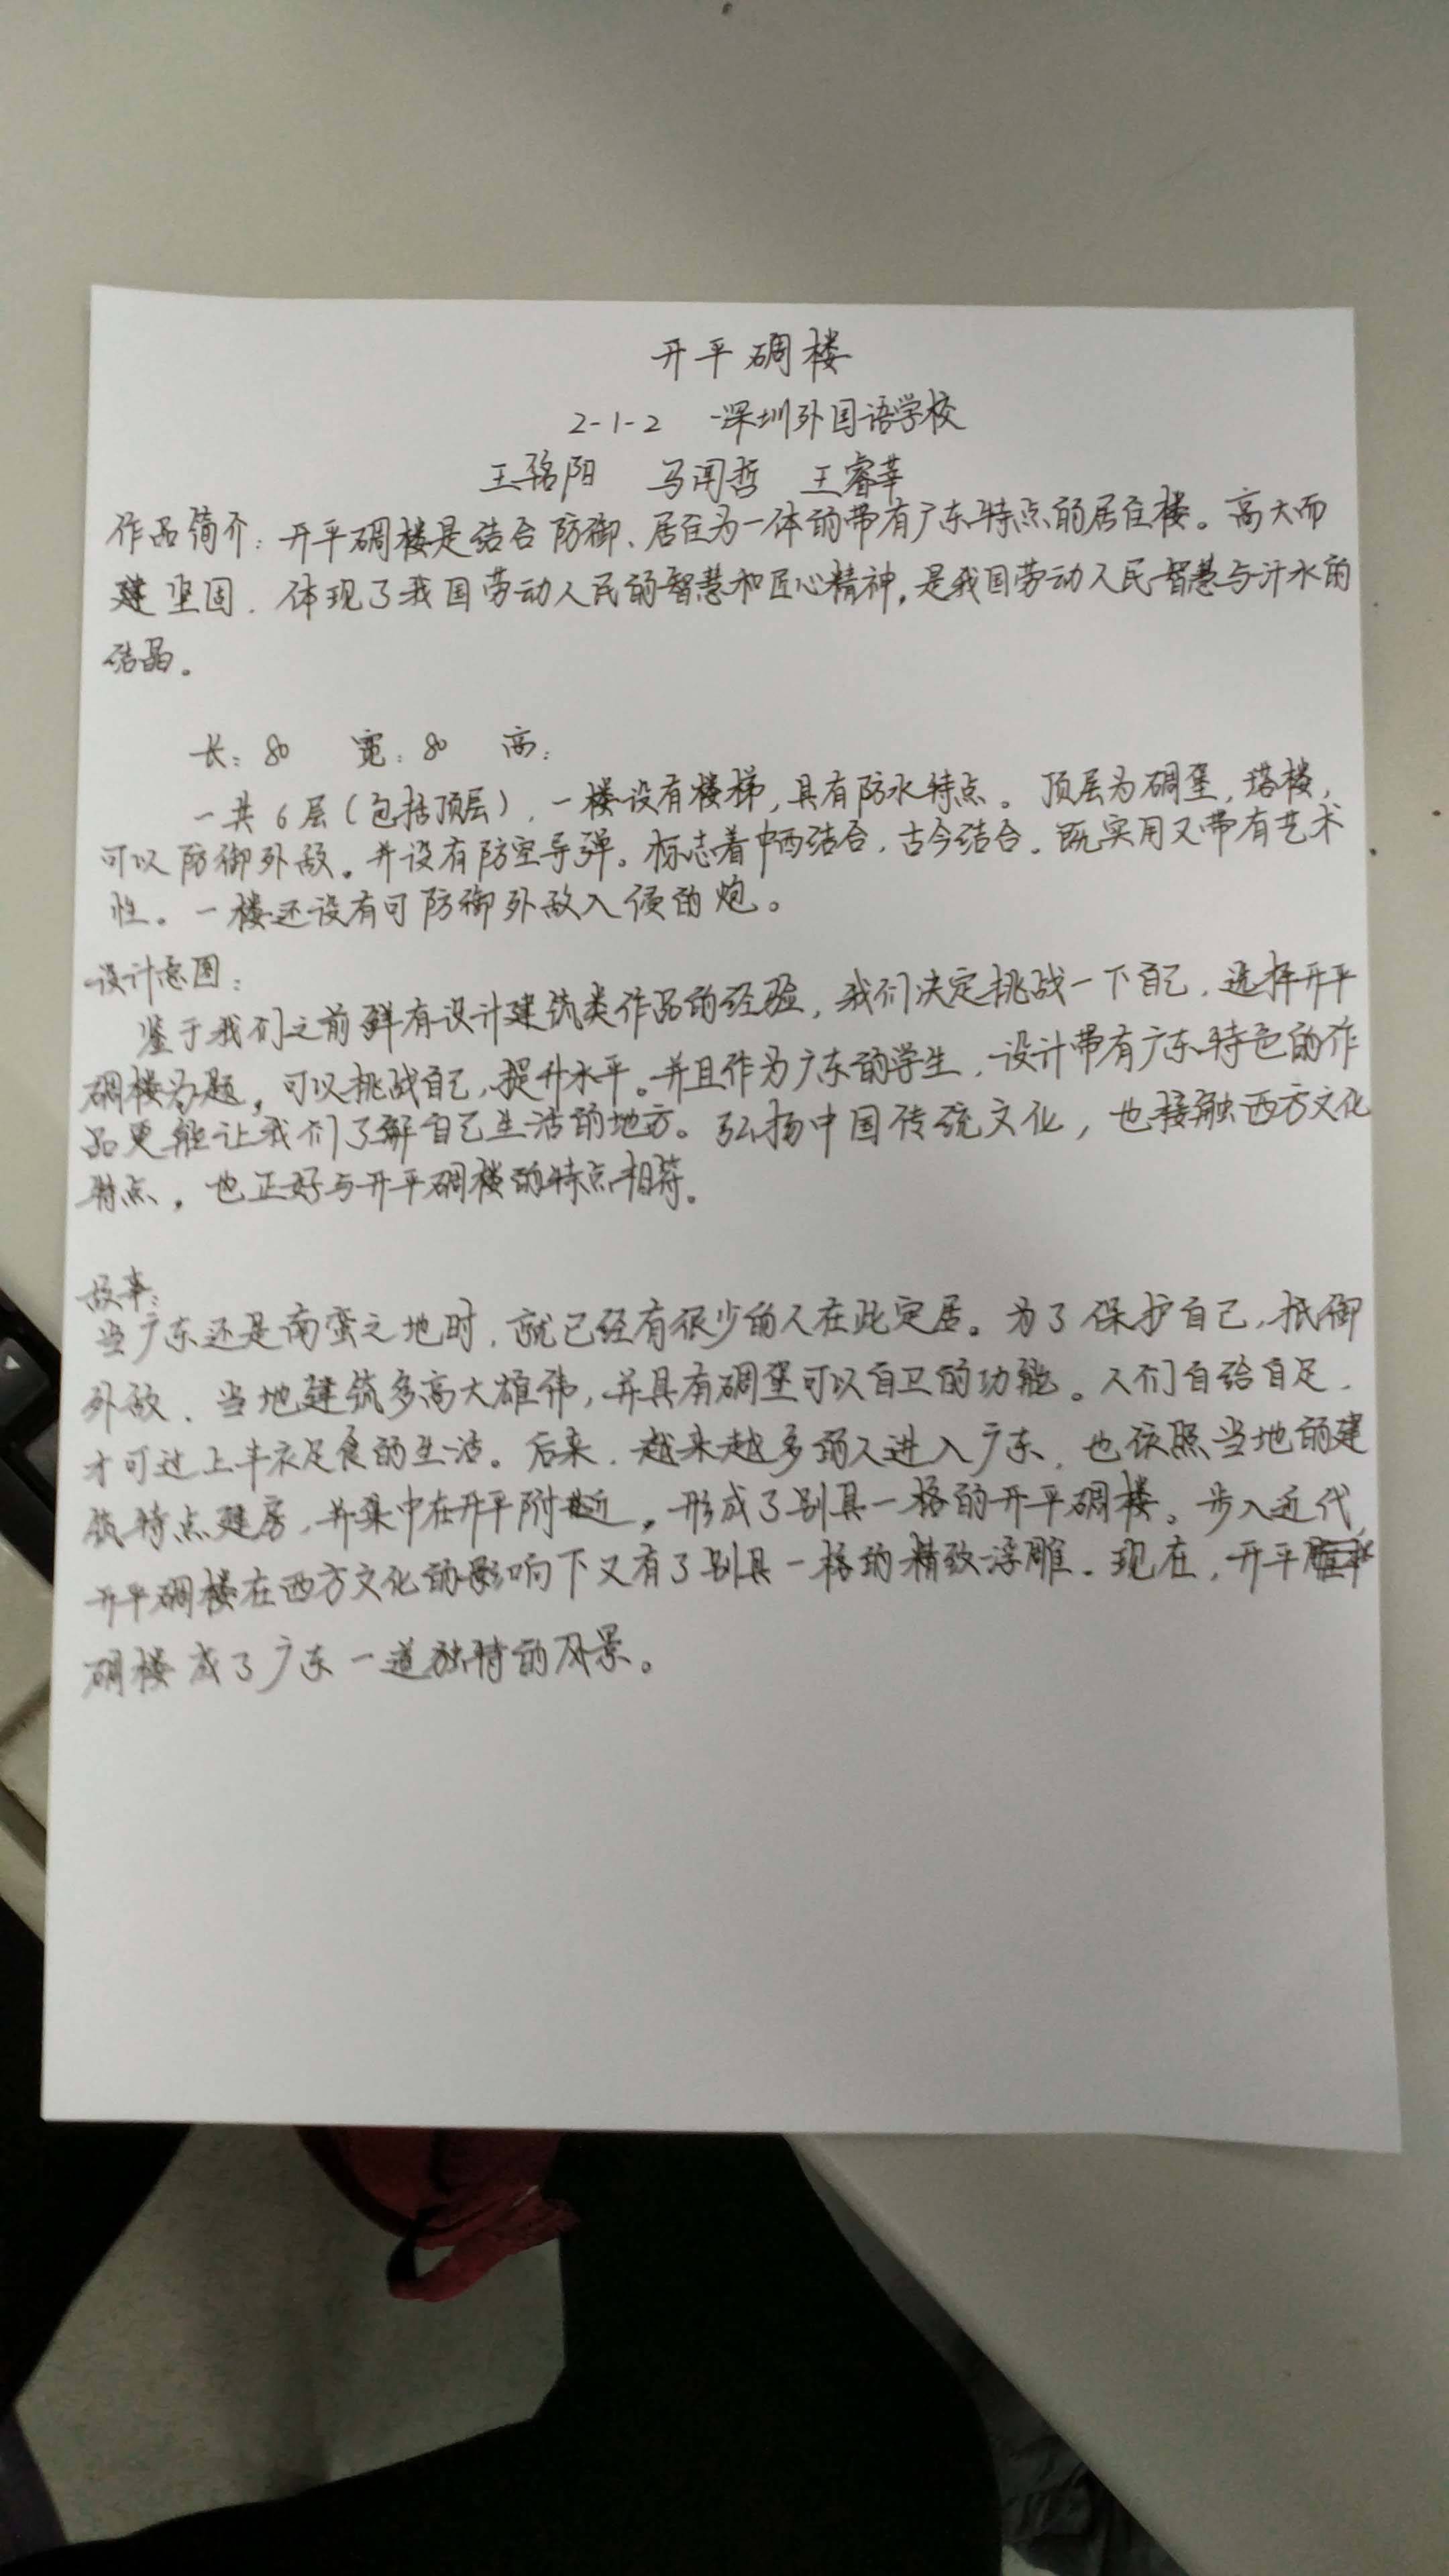 开平碉楼
2-1-2 深圳外国语学校
王铭阳 马闻哲 王睿莘
作品简介：开平碉楼是结合防御、居住为一体的带有广东特点的居住楼。高大而
建坚固，体现了我国劳动人民的智慧和匠心精神，是我国劳动人民智慧与汗水的
结晶。
长：80 宽：80 高：
一共6层（包括顶层），一楼设有楼梯，具有防水特点。顶层为碉堡，塔楼，
可以防御外敌。并设有防空导弹。标志着中西结合，古今结合。既实用又带有艺术
性。一楼还设有可防御外敌入侵的炮。
设计意图：
鉴于我们之前鲜有设计建筑类作品的经验，我们决定挑战一下自己，选择开平
碉楼为题，可以挑战自己，提升水平。并且作为广东的学生，设计带有广东特色的作
品更能让我们了解自己生活的地方。弘扬中国传统文化，也接触西方文化
特点，也正好与开平碉楼的特点相符。
故事：
当广东还是南蛮之地时，就已经有很少的人在此定居。为了保护自己，抵御
外敌，当地建筑多高大雄伟，并具有碉堡可以自卫的功能。人们自给自足，
才可过上丰衣足食的生活。后来，越来越多的人进入广东，也依照当地的建
筑特点建房，并集中在开平附近，形成了别具一格的开平碉楼。步入近代，
开平碉楼在西方文化的影响下又有了别具一格的精致浮雕。现在，开平
碉楼成了广东一道独特的风景。